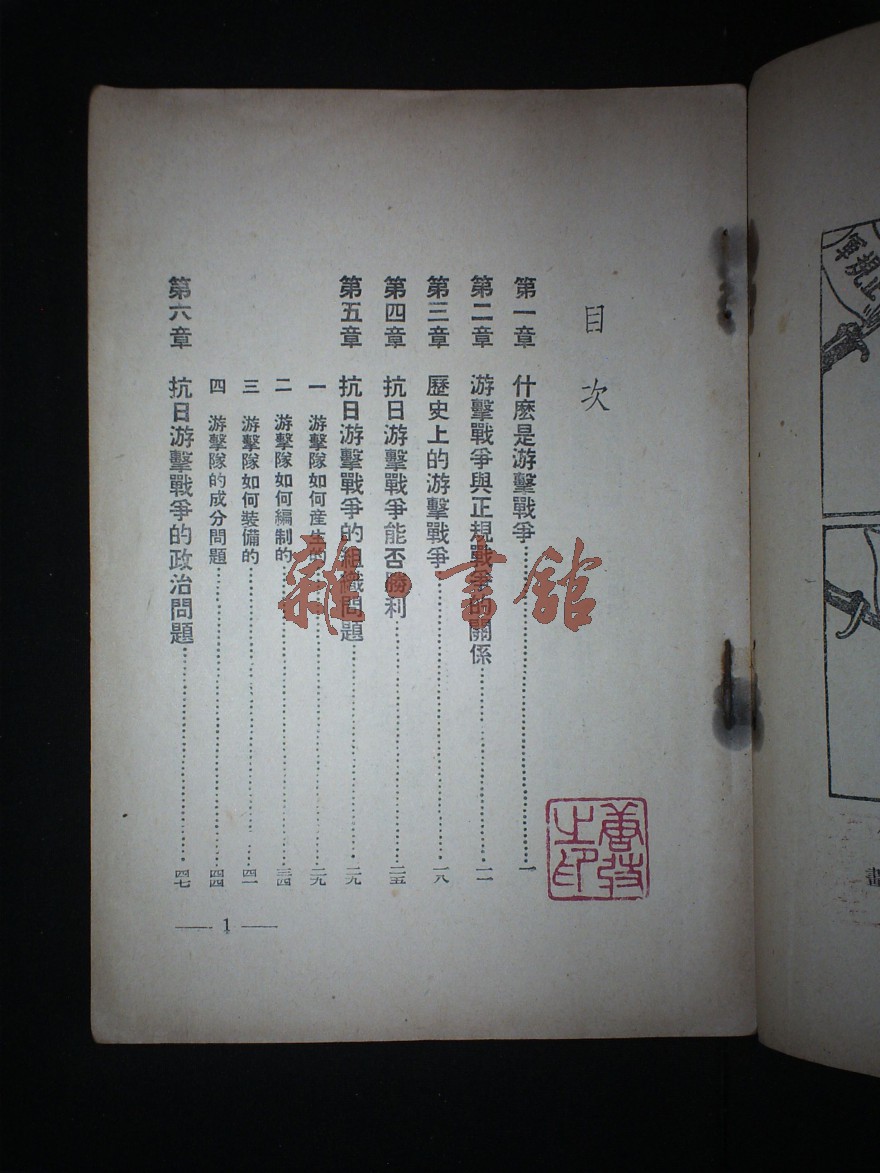 目次
第一章 什麽是游擊戰爭…………一
第二章 游擊戰爭與正規戰爭的關係…………一一
第三章 歷史上的游擊戰爭…………一八
第四章 抗日游擊戰爭能否勝利…………二五
第五章 抗日游擊戰爭的組織問題…………二九
一 游擊隊如何產生的…………二九
二 游擊隊如何編制的…………三四
三 游擊隊如何裝備的…………四一
四 游擊隊的成分問題…………四四
第六章 抗日游擊戰爭的政治問題…………四七
— 1 —
雜·書館
之印